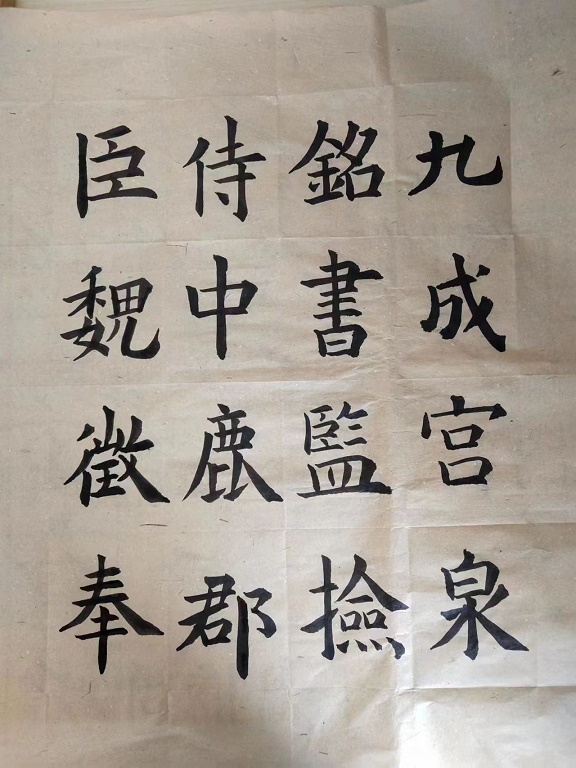 九成宮泉
銘書監撿
侍中鹿郡
臣魏徵奉